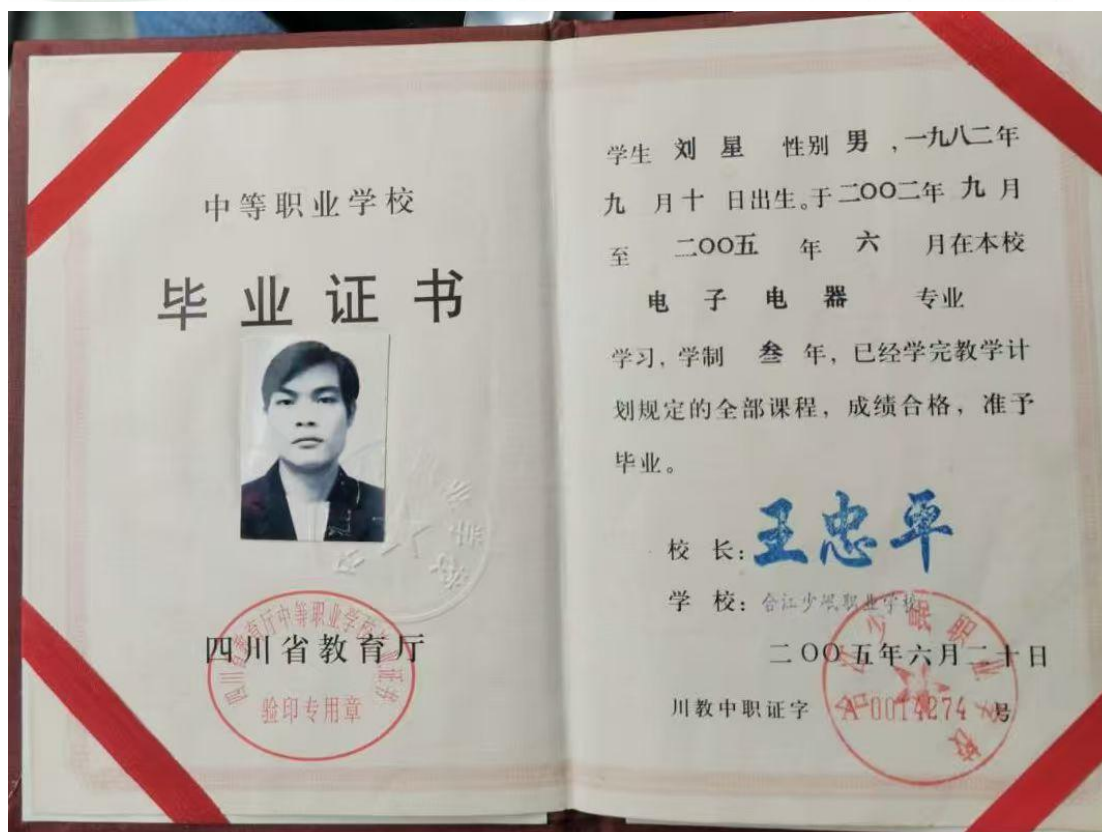 中等职业学校
毕业证书
四川省教育厅中等职业学校毕业证书
四川省教育厅
验印专用章
学生 刘星 性别 男 ,一九八二年
九 月十 日出生。于二〇〇二年 九 月
至 二〇〇五 年 六 月在本校
电子电器 专业
学习, 学制 叁 年, 已经学完教学计
划规定的全部课程, 成绩合格, 准予
毕业。
校 长: 王忠平
学 校: 合江少岷职业学校
二〇〇五年六月二十日
川教中职证字 A 0014274 号
合江少岷职业学校